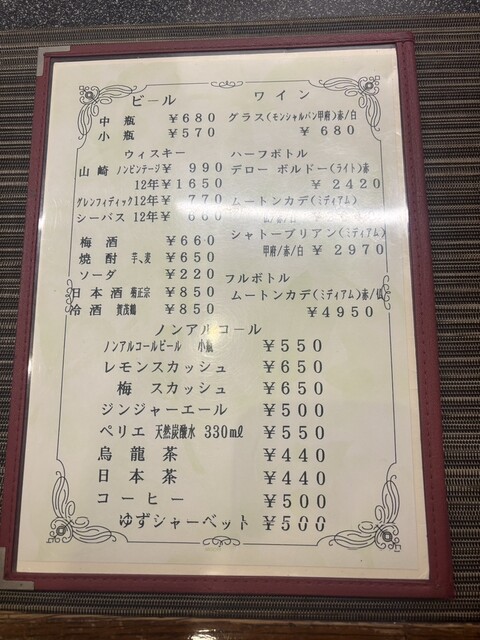 ビール
中瓶 ¥680
小瓶 ¥570
ウィスキー
山崎 ノンビンテージ ¥990
12年 ¥1650
グレンフィディック12年 ¥770
シーバス 12年 ¥600
梅酒 ¥660
焼酎 芋、麦 ¥650
ソーダ ¥220
日本酒 菊正宗 ¥850
冷酒 賀茂鶴 ¥850
ワイン
グラス(モンシャルバン甲府)赤/白
¥680
ハーフボトル
デロー ボルドー(ライト)赤
¥2420
ムートンカデ(ミディアム)
シャトーブリアン(ミディアム)
甲府/赤/白 ¥2970
フルボトル
ムートンカデ(ミディアム)赤/仏
¥4950
ノンアルコール
ノンアルコールビール 小瓶 ¥550
レモンスカッシュ ¥650
梅 スカッシュ ¥650
ジンジャーエール ¥500
ペリエ 天然炭酸水 330ml ¥550
烏龍茶 ¥440
日本茶 ¥440
コーヒー ¥500
ゆずシャーベット ¥500